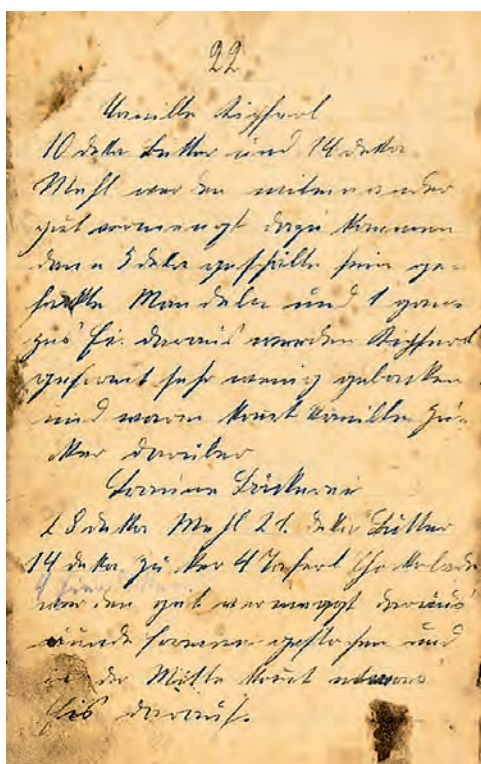 22
Vanille Kipferl
10 deka Butter und 14 deka
Mehl werden miteinander
gut vermengt dazu kommen
dann 5 deka geschälte fein ge-
hackte Mandeln und 1 gan-
zes Ei. daraus werden Kipferl
geformt sehr wenig gebacken
und warm komt Vanille Zu-
cker darüber
Bäckerei
28 deka Mehl 21. deka Butter
14 deka Zucker 4 Taferl Chokolade
werden gut vermengt daraus
runde formen gestochen und
in der Mitte komt etwas
Eis darauf.